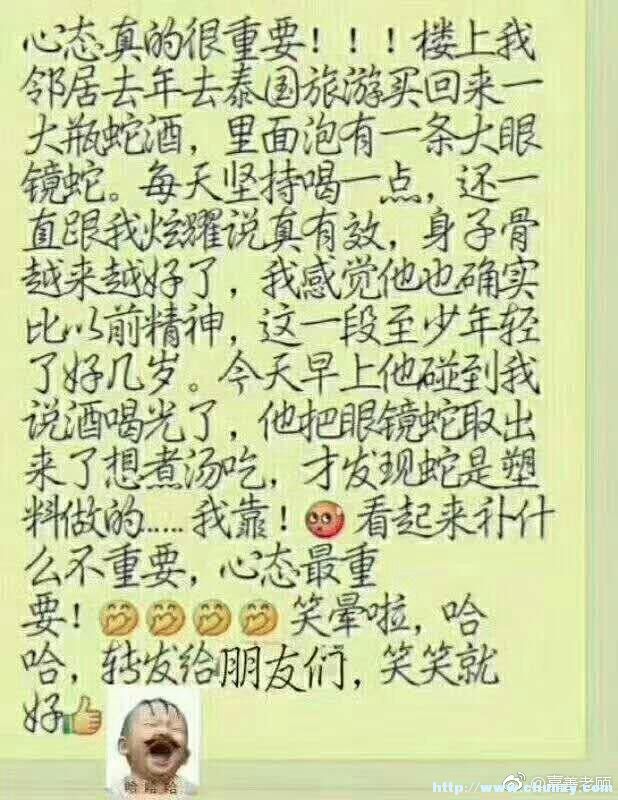 心态真的很重要！！！楼上我
邻居去年去泰国旅游买回来一
大瓶蛇酒，里面泡有一条大眼
镜蛇。每天坚持喝一点，还一
直跟我炫耀说真有效，身子骨
越来越好了，我感觉他也确实
比以前精神，这一段至少年轻
了好几岁。今天早上他碰到我
说酒喝光了，他把眼镜蛇取出
来了想煮汤吃，才发现蛇是塑
料做的.....我靠！看起来补什
么不重要，心态最重
要！笑晕啦，哈
哈，转发给朋友们，笑笑就
好
哈哈哈
http://www.chunzy.com